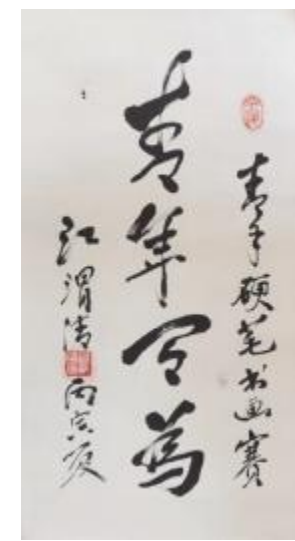 青年硬笔书画赛
青年可为
江渭清 丙寅夏